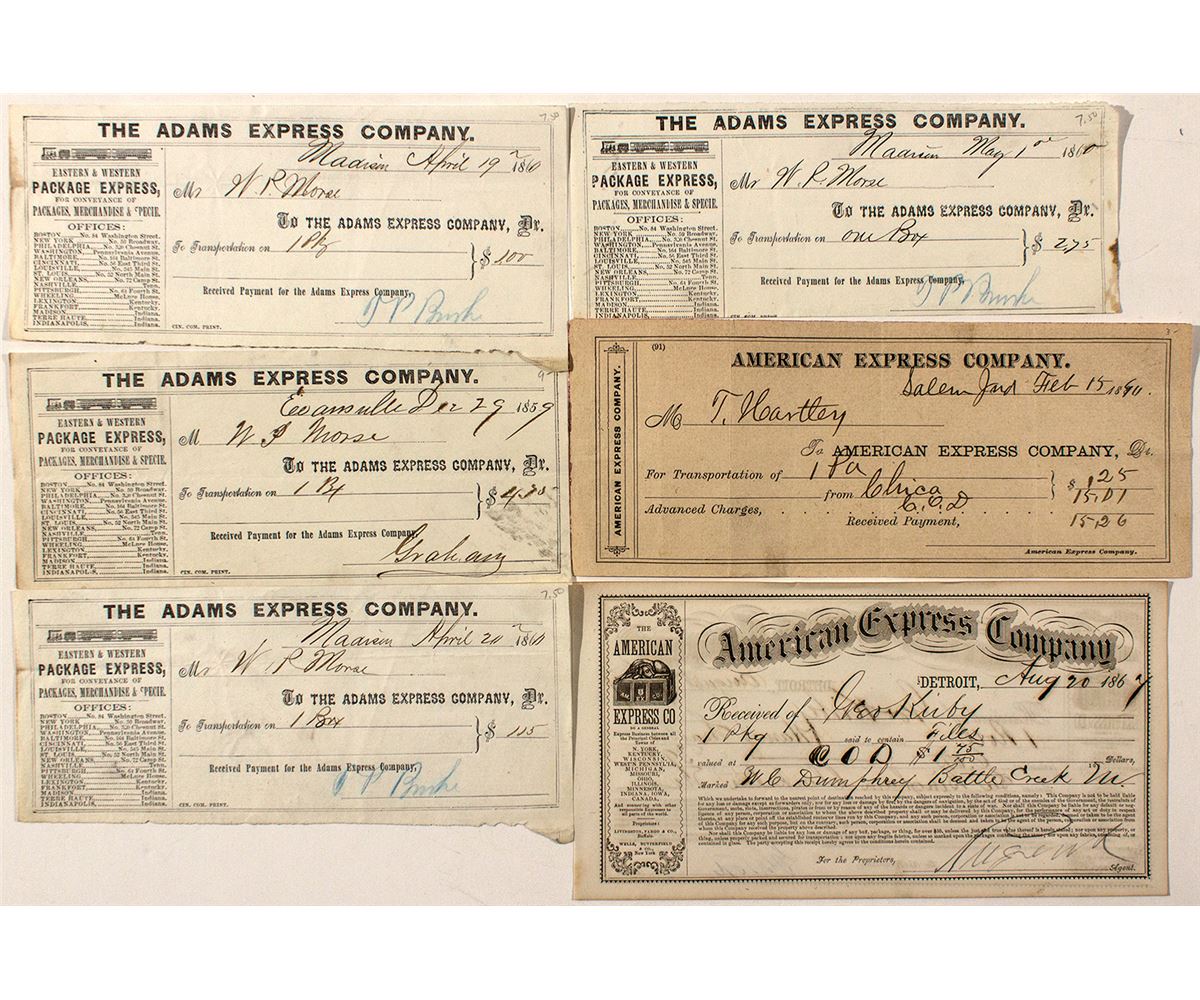 THE ADAMS EXPRESS COMPANY.
7.50
Madison April 19 1860
EASTERN & WESTERN
PACKAGE EXPRESS,
FOR CONVEYANCE OF
PACKAGES, MERCHANDISE & SPECIE.
OFFICES:
BOSTON, No. 84 Washington Street.
NEW YORK No. 59 Broadway.
PHILADELPHIA, No. 320 Chesnut St.
WASHINGTON, Pennsylvania Avenue.
BALTIMORE, No. 164 Baltimore St.
CINCINNATI, No. 56 East Third St.
LOUISVILLE, No. 545 Main St.
ST. LOUIS, No. 52 North Main St.
NEW ORLEANS, No. 72 Camp St.
NASHVILLE, Tenn.
PITTSBURG, No. 64 Fourth St.
WHEELING, McLure House.
LEXINGTON, Kentucky.
FRANKFORT, Kentucky.
MADISON, Indiana.
TERRE HAUTE, Indiana.
INDIANAPOLIS, Indiana.
Mr W. R. Morse
To THE ADAMS EXPRESS COMPANY, Dr.
To Transportation on 1 Pkg $ 1.00
Received Payment for the Adams Express Company,
CIN. COM. PRINT.
THE ADAMS EXPRESS COMPANY.
7.50
Madison May 1 1860
EASTERN & WESTERN
PACKAGE EXPRESS,
FOR CONVEYANCE OF
PACKAGES, MERCHANDISE & SPECIE.
OFFICES:
BOSTON, No. 84 Washington Street.
NEW YORK No. 59 Broadway.
PHILADELPHIA, No. 320 Chesnut St.
WASHINGTON, Pennsylvania Avenue.
BALTIMORE, No. 164 Baltimore St.
CINCINNATI, No. 56 East Third St.
LOUISVILLE, No. 545 Main St.
ST. LOUIS, No. 52 North Main St.
NEW ORLEANS, No. 72 Camp St.
NASHVILLE, Tenn.
PITTSBURG, No. 64 Fourth St.
WHEELING, McLure House.
LEXINGTON, Kentucky.
FRANKFORT, Kentucky.
MADISON, Indiana.
TERRE HAUTE, Indiana.
INDIANAPOLIS, Indiana.
Mr W. R. Morse
To THE ADAMS EXPRESS COMPANY, Dr.
To Transportation on one Box $ 2.75
Received Payment for the Adams Express Company,
THE ADAMS EXPRESS COMPANY.
Evansville Dec 29 1859
EASTERN & WESTERN
PACKAGE EXPRESS,
FOR CONVEYANCE OF
PACKAGES, MERCHANDISE & SPECIE.
OFFICES:
BOSTON, No. 84 Washington Street.
NEW YORK No. 59 Broadway.
PHILADELPHIA, No. 320 Chesnut St.
WASHINGTON, Pennsylvania Avenue.
BALTIMORE, No. 164 Baltimore St.
CINCINNATI, No. 56 East Third St.
LOUISVILLE, No. 545 Main St.
ST. LOUIS, No. 52 North Main St.
NEW ORLEANS, No. 72 Camp St.
NASHVILLE, Tenn.
PITTSBURG, No. 64 Fourth St.
WHEELING, McLure House.
LEXINGTON, Kentucky.
FRANKFORT, Kentucky.
MADISON, Indiana.
TERRE HAUTE, Indiana.
INDIANAPOLIS, Indiana.
M W Morse
To THE ADAMS EXPRESS COMPANY, Dr.
To Transportation on 1 Bx $
Received Payment for the Adams Express Company,
Graham
CIN. COM. PRINT.
(91)
AMERICAN EXPRESS COMPANY.
AMERICAN EXPRESS COMPANY.
Salem Ind Feb 15 1890.
M T. Hartley
To AMERICAN EXPRESS COMPANY, Dr.
For Transportation of 1 Pa
from Chica $ .25
Advanced Charges, C.O.D. 15.01
Received Payment, 15.26
American Express Company.
THE ADAMS EXPRESS COMPANY.
7.50
Madison April 20 1860
EASTERN & WESTERN
PACKAGE EXPRESS,
FOR CONVEYANCE OF
PACKAGES, MERCHANDISE & SPECIE.
OFFICES:
BOSTON, No. 84 Washington Street.
NEW YORK No. 59 Broadway.
PHILADELPHIA, No. 320 Chesnut St.
WASHINGTON, Pennsylvania Avenue.
BALTIMORE, No. 164 Baltimore St.
CINCINNATI, No. 56 East Third St.
LOUISVILLE, No. 545 Main St.
ST. LOUIS, No. 52 North Main St.
NEW ORLEANS, No. 72 Camp St.
NASHVILLE, Tenn.
PITTSBURG, No. 64 Fourth St.
WHEELING, McLure House.
LEXINGTON, Kentucky.
FRANKFORT, Kentucky.
MADISON, Indiana.
TERRE HAUTE, Indiana.
INDIANAPOLIS, Indiana.
Mr W. R Morse
To THE ADAMS EXPRESS COMPANY, Dr.
To Transportation on 1 Box $ 1.15
Received Payment for the Adams Express Company,
CIN. COM. PRINT.
THE
AMERICAN
EXPRESS CO
DO A GENERAL
Express Business between all
the Principal Cities and
Towns of
N. YORK,
KENTUCKY,
WISCONSIN,
WEST'N PENNSYLV'A,
MICHIGAN,
MISSOURI,
OHIO,
ILLINOIS,
MINNESOTA,
INDIANA, IOWA,
CANADA,
And connecting with other
responsible Expresses to
all parts of the world.
Proprietors:
LIVINGSTON, FARGO & CO.,
Buffalo.
WELLS, BUTTERFIELD
& CO.,
New York
American Express Company
DETROIT, Aug 20 1867
Received of Geo Kirby
1 Pkg said to contain Files
valued at C O D $1 75/100 Dollars,
Marked W. C. Dumphrey Battle Creek M
For the Proprietors,
Agent.